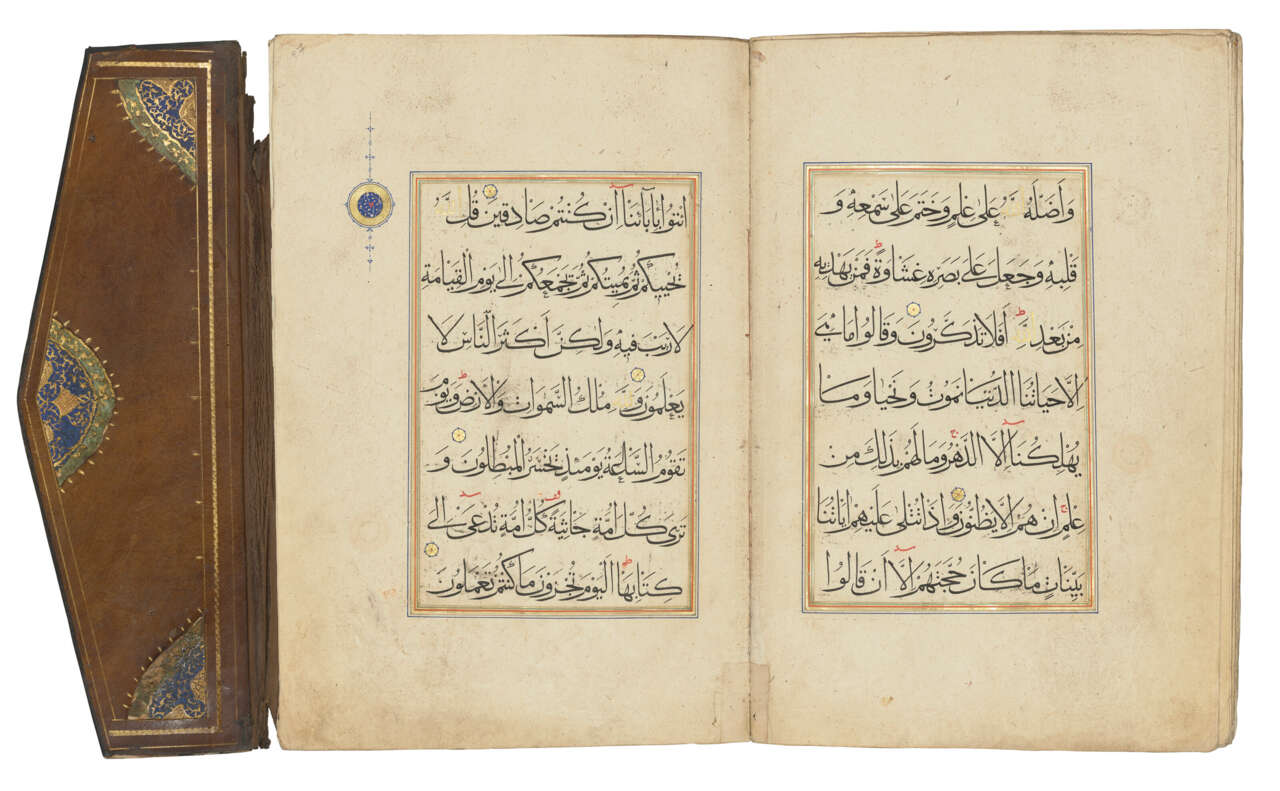 وَأَضَلَّهُ اللَّهُ عَلَى عِلْمٍ وَخَتَمَ عَلَى سَمْعِهِ وَ
قَلْبِهِ وَجَعَلَ عَلَى بَصَرِهِ غِشَاوَةً فَمَنْ يَهْدِيهِ
مِنْ بَعْدِ اللَّهِ أَفَلَا تَذَكَّرُونَ وَقَالُوا مَا هِيَ
إِلَّا حَيَاتُنَا الدُّنْيَا نَمُوتُ وَنَحْيَا وَمَا
يُهْلِكُنَا إِلَّا الدَّهْرُ وَمَا لَهُمْ بِذَلِكَ مِنْ
عِلْمٍ إِنْ هُمْ إِلَّا يَظُنُّونَ وَإِذَا تُتْلَى عَلَيْهِمْ آيَاتُنَا
بَيِّنَاتٍ مَا كَانَ حُجَّتَهُمْ إِلَّا أَنْ قَالُوا
ائْتُوا بِآبَائِنَا إِنْ كُنْتُمْ صَادِقِينَ قُلِ اللَّهُ
يُحْيِيكُمْ ثُمَّ يُمِيتُكُمْ ثُمَّ يَجْمَعُكُمْ إِلَى يَوْمِ الْقِيَامَةِ
لَا رَيْبَ فِيهِ وَلَكِنَّ أَكْثَرَ النَّاسِ لَا
يَعْلَمُونَ وَلِلَّهِ مُلْكُ السَّمَوَاتِ وَالْأَرْضِ وَيَوْمَ
تَقُومُ السَّاعَةُ يَوْمَئِذٍ يَخْسَرُ الْمُبْطِلُونَ وَ
تَرَى كُلَّ أُمَّةٍ جَاثِيَةً كُلُّ أُمَّةٍ تُدْعَى إِلَى
كِتَابِهَا الْيَوْمَ تُجْزَوْنَ مَا كُنْتُمْ تَعْمَلُونَ